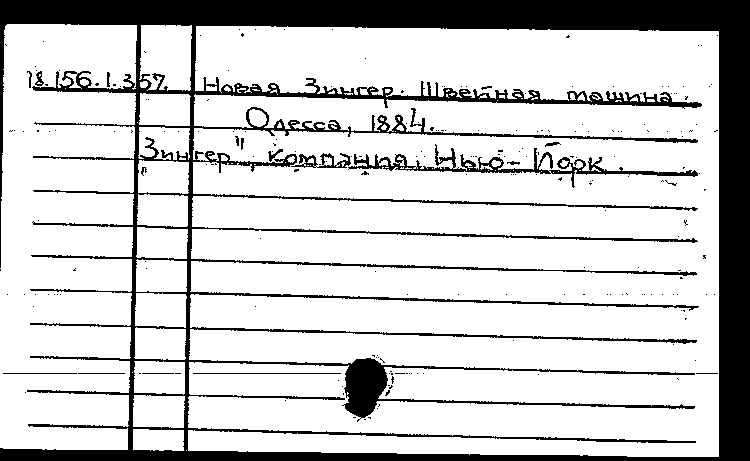 18.156.1.357. Новая Зингер. Швейная машина.
Одесса, 1884.
„Зингер", компания. Нью-Йорк.